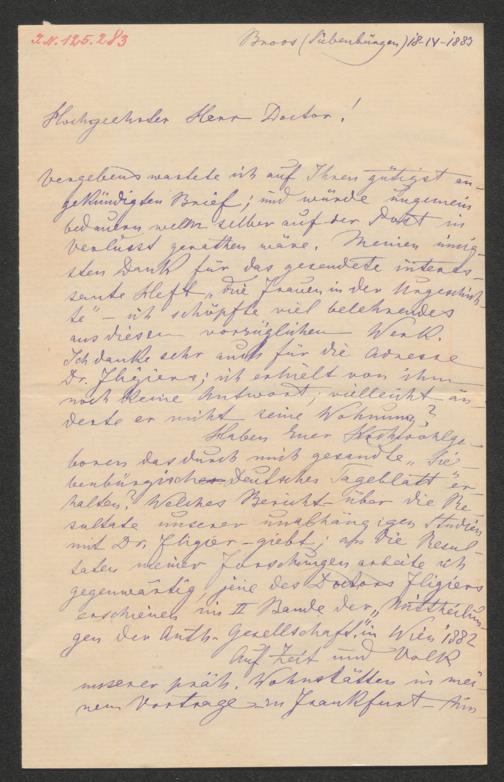 I.N. 125.283
Broos (Siebenbürgen) 18-IV-1883
Hochgeehrter Herr Doctor!
Vergebens wartete ich auf Ihren gütigst an-
gekündigten Brief; und würde ungemein
bedauern, wenn selber auf der Post in
Verlust gerathen wäre. Meinen innig-
sten Dank für das gesendete interes-
sante Heft „Die Frauen in der Urgeschich-
te" – ich schöpfte viel belehrendes
aus diesem vorzüglichen Werk.
Ich danke sehr auch für die Adresse
Dr. Fligiers; ich erhielt von ihm
noch keine Antwort; vielleicht än-
derte er nicht seine Wohnung?
Haben Euer Hochwohlge-
boren das durch mich gesendte „Sie-
benbürgisch Deutsches Tageblatt" er-
halten? Welches Bericht über die Re-
sultate unserer unabhängigen Studien
mit Dr. Fligier – giebt; an die Resul-
taten meiner Forschungen arbeite ich
gegenwärtig, jene des Doctors Fligiers
erschienen im II Bande der „Mittheilun-
gen der Anth. Gesellschaft" in Wien 1882
Auf Zeit und Volk
unserer präh. Wohnstätten in mei-
nem Vortrage in Frankfurt – Am